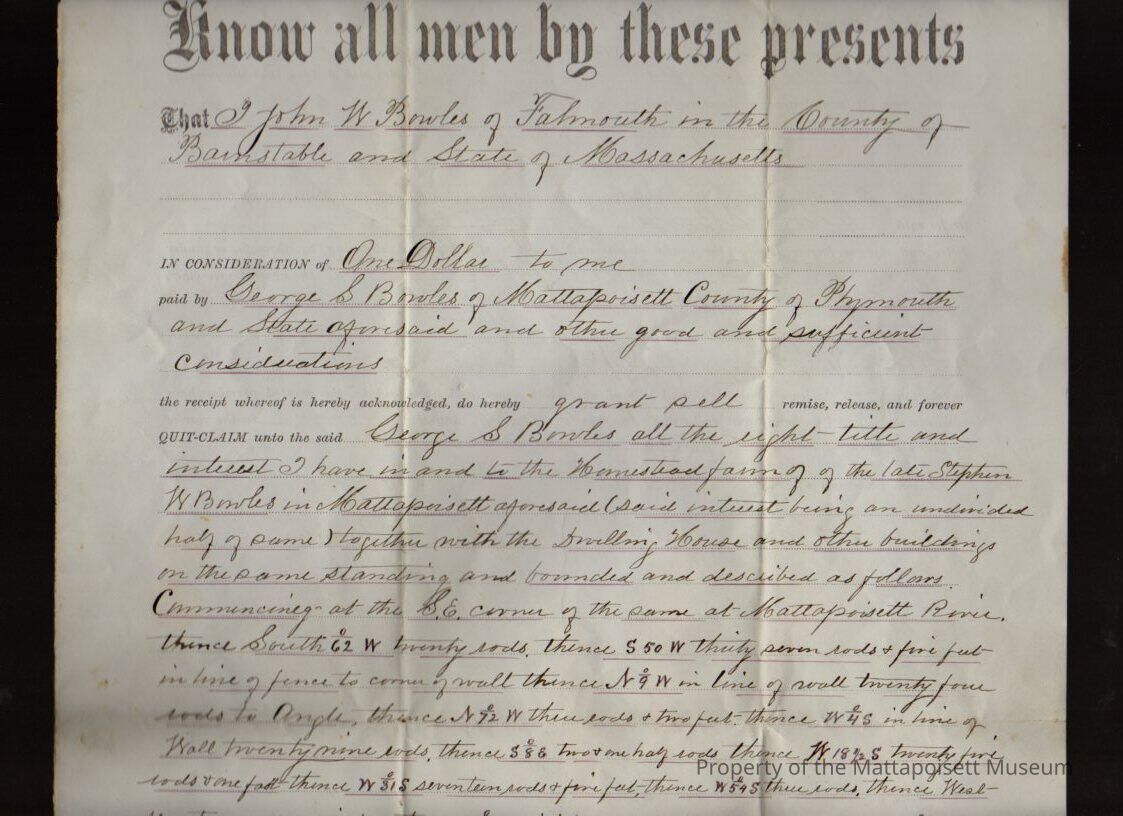 Know all men by these presents
That I John W Bowles of Falmouth in the County of
Barnstable and State of Massachusetts
IN CONSIDERATION of One Dollar to me
paid by George S Bowles of Mattapoisett County of Plymouth
and State aforesaid and other good and sufficient
considerations
the receipt whereof is hereby acknowledged, do hereby grant sell remise, release, and forever
QUIT-CLAIM unto the said George S Bowles all the right title and
interest I have in and to the Homestead farm of of the late Stephen
W Bowles in Mattapoisett aforesaid (said interest being an undivided
half of same) together with the Dwelling House and other buildings
on the same standing and bounded and described as follows
Commencing at the S.E. corner of the same at Mattapoisett River.
thence South 62° W twenty rods. thence S 50 W thirty seven rods & five feet
in line of fence to corner of wall thence N 9° W in line of wall twenty four
rods to Angle, thence N 72° W three rods & two feet. thence W 4° S in line of
Wall twenty nine rods, thence S 8° E two & one half rods thence W 18 1/2 S twenty five
rods & one foot thence W 31° S seventeen rods & five feet, thence W 54° S three rods, thence West
Property of the Mattapoisett Museum